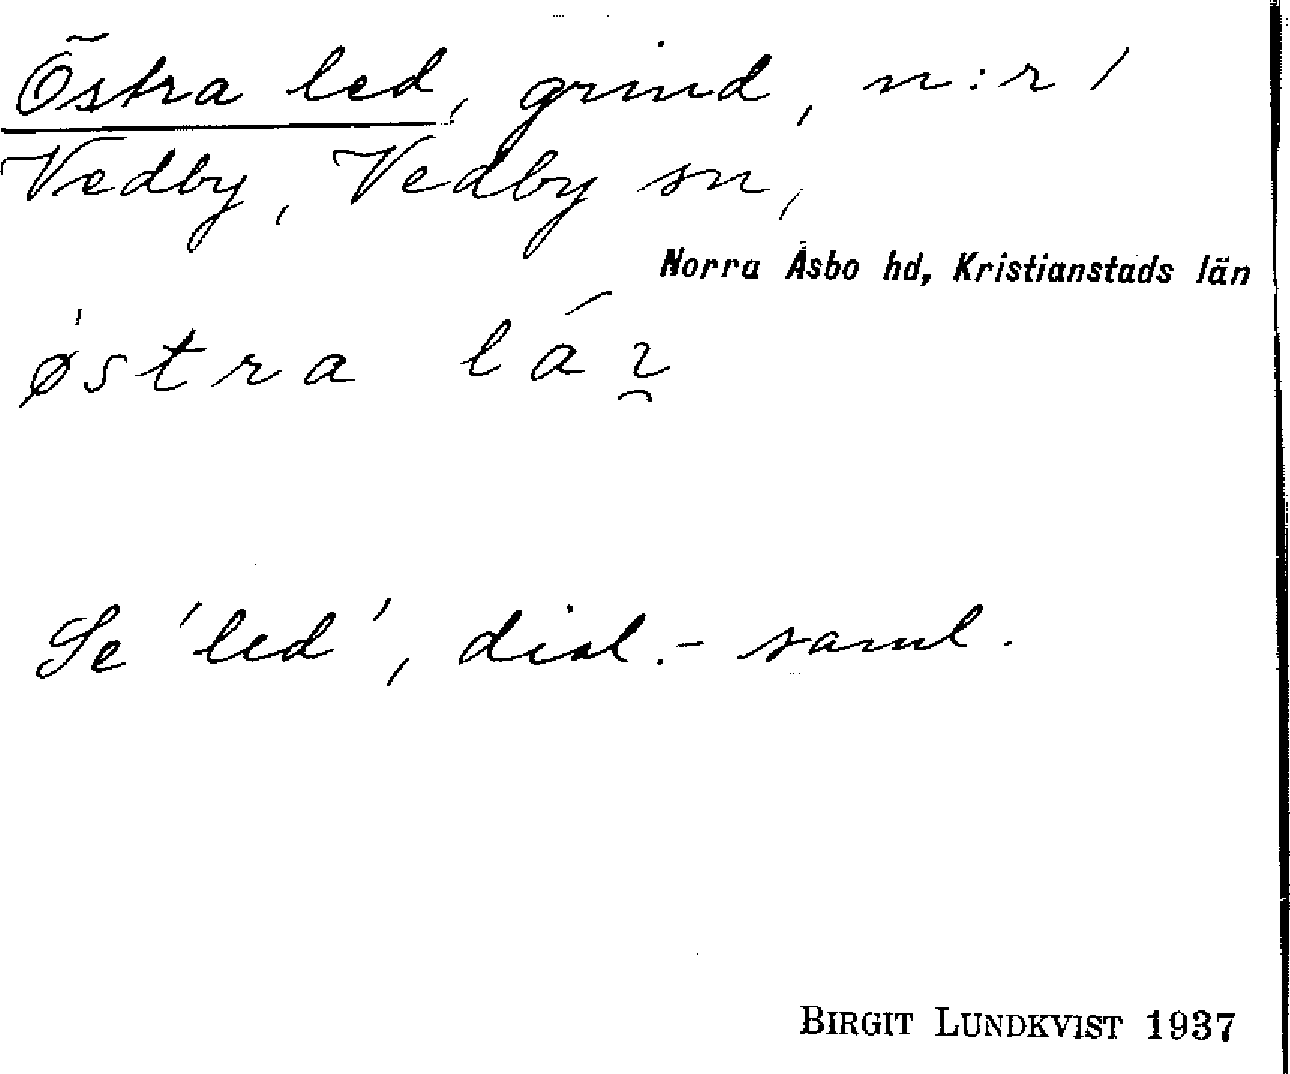 Östra led, grind, n:r 1
Vedby, Vedby sn,
Norra Åsbo hd, Kristianstads län
østra
Se 'led', dial.-saml.
BIRGIT LUNDKVIST 1937